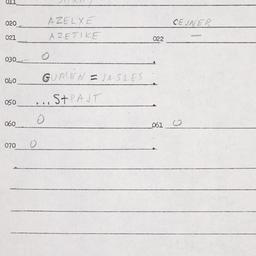 011
020 AZELXE CEJNER
021 AZETIKE 022 —
030 0
040 GUMEN = JASLES
050 ... StPAJT
060 0 061 0
070 0